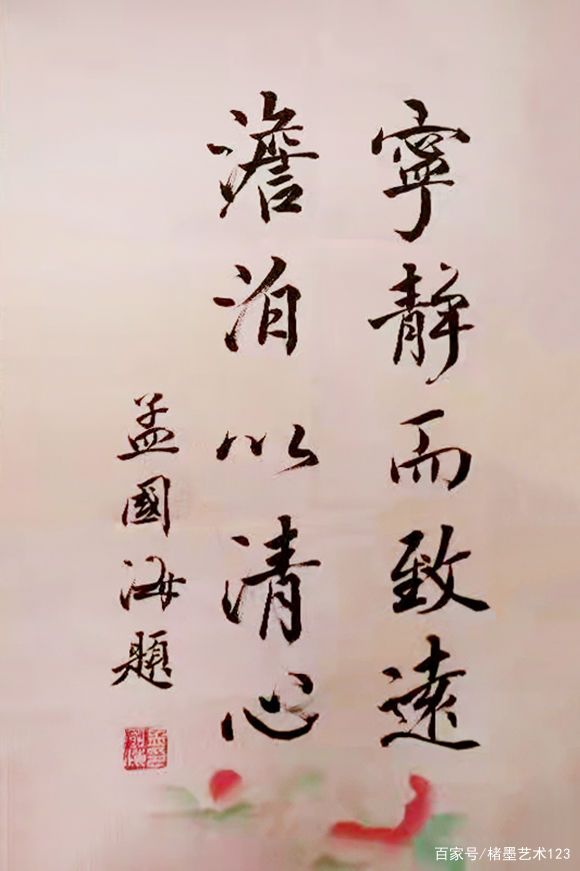 寧靜而致遠
澹泊以清心
孟國海題
百家号/楮墨艺术123